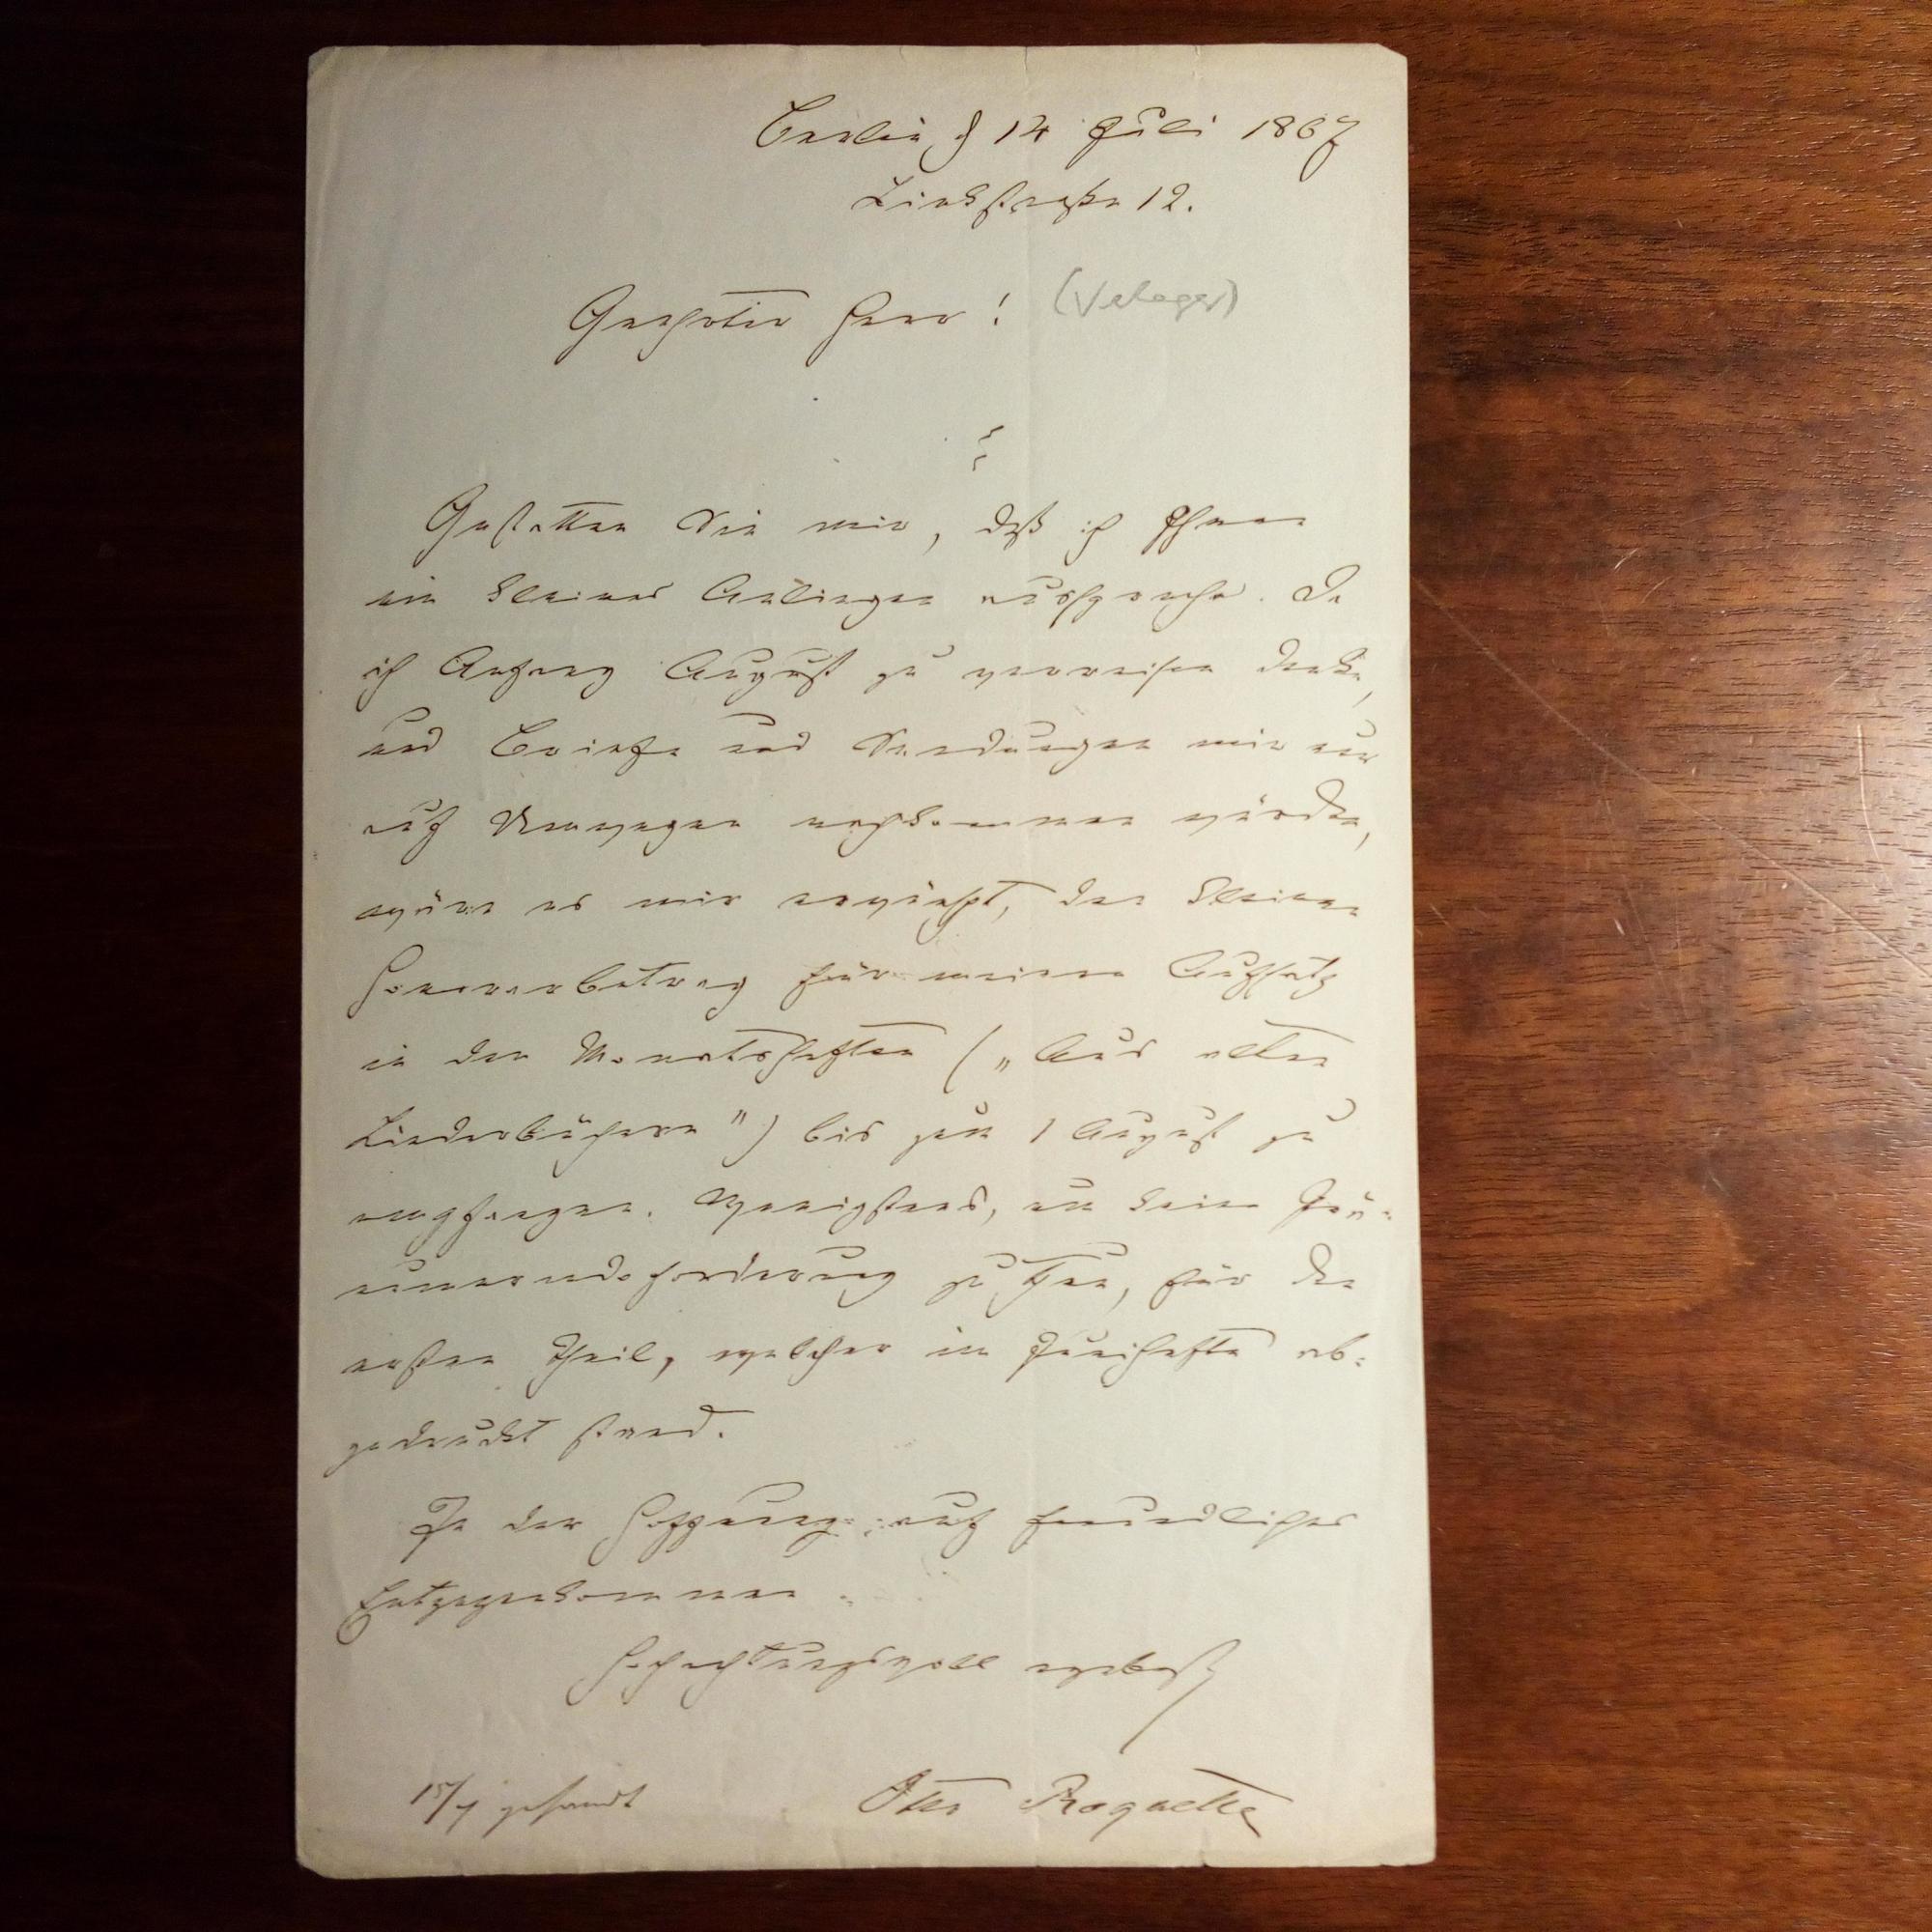 Berlin d 14 Juli 1867
Linkstraße 12.
Geehrter Herr! (Verleger)
Gestatten Sie mir, daß ich Ihnen
ein kleines Anliegen ausspreche. Da
ich Anfang August zu verreisen denke,
und Briefe und Sendungen mir nur
auf Umwegen nachkommen würden,
wäre es mir erwünscht, den kleinen
Honorarbetrag für meinen Aufsatz
in den Monatsheften („Aus alten
Liederbüchern") bis zum 1 August zu
empfangen. Wenigstens, um keine
zu thun, für den
ersten Theil, welcher im Juniheft ab-
gedruckt stand.
In der Hoffnung auf freundliches
Entgegenkommen
Hochachtungsvoll ergebenst
15/7 gesandt Otto Roquette